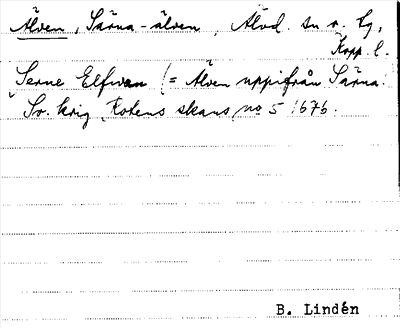 Älven, Särna-älven, Älvd. sn o. tg,
Kopp. l.
Serne Elfwan (= Älven uppifrån Särna.
Sv. krig Rotens skans no 5 1676.
B. Lindén